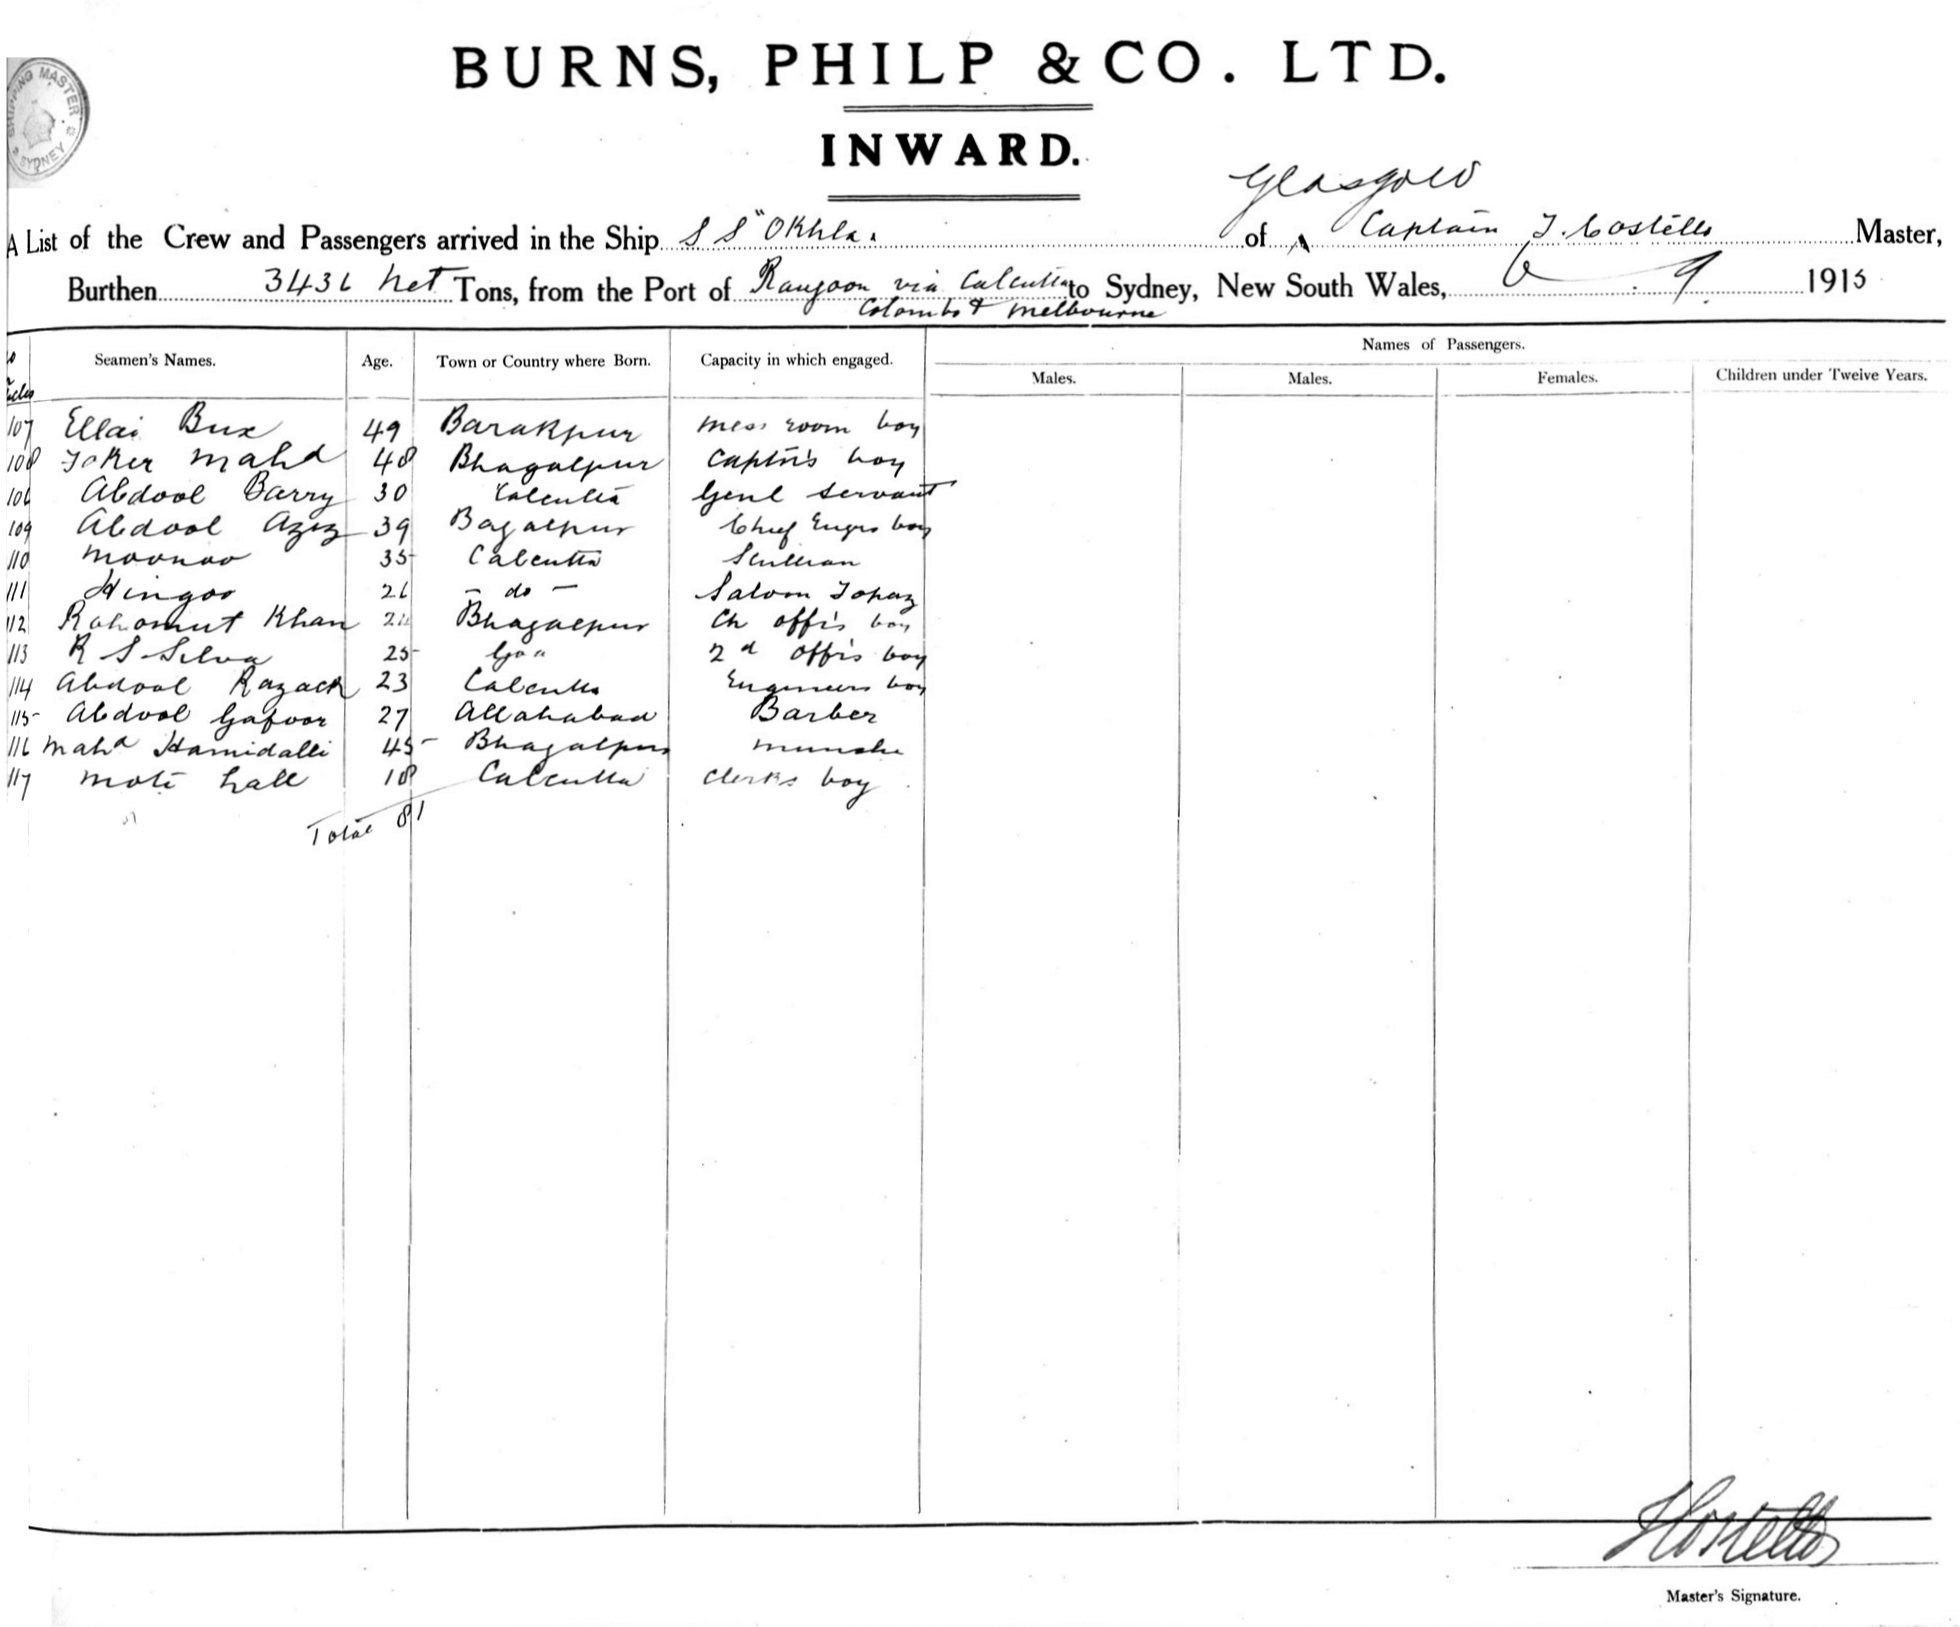 SHIPPING MASTER
SYDNEY
BURNS, PHILP & CO. LTD.
INWARD.
Glasgow
A List of the Crew and Passengers arrived in the Ship S S "Okhla. of Captain T. Costello Master,
Burthen 3436 Net Tons, from the Port of Rangoon via Calcutta to Sydney, New South Wales, 6 . 9. 1915
Colombo & Melbourne
Seamen's Names. Age. Town or Country where Born. Capacity in which engaged. Names of Passengers.
Males. Males. Females. Children under Twelve Years.
107 Ellai Bux 49 Barakpur mess room boy
108 Joker Mahd 48 Bhagalpur Captn's boy
106 Abdool Barry 30 Calcutta Genl Servant
109 Abdool Aziz 39 Bagalpur Chief Engrs boy
110 Moonoo 35 Calcutta Scullian
111 Hingoo 26 - do - Saloon Topaz
112 Rahomut Khan Bhagalpur Ch offi's boy
113 R S Silva 25 Goa 2nd offi's boy
114 Abdool Razack 23 Calcutta Engineers boy
115 Abdool Gafoor 27 Allahabad Barber
116 Mahd Hamidalli 45 Bhagalpur munshe
117 Moti Lall 18 Calcutta Clerks boy
Total 81
Costello
Master's Signature.